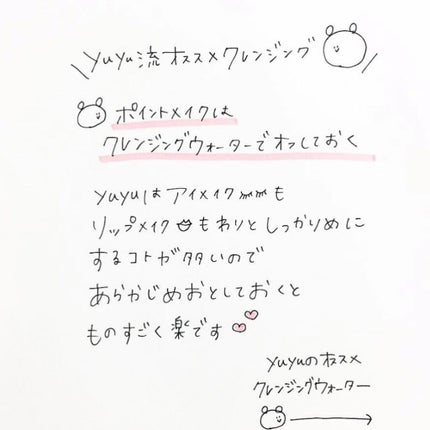 \yuyu流オススメクレンジング/
ポイントメイクは
クレンジングウォーターでオフしておく
yuyuはアイメイクも
リップメイクもわりとしっかりめに
するコトが多いので
あらかじめおとしておくと
ものすごく楽です
yuyuのオススメ
クレンジングウォーター